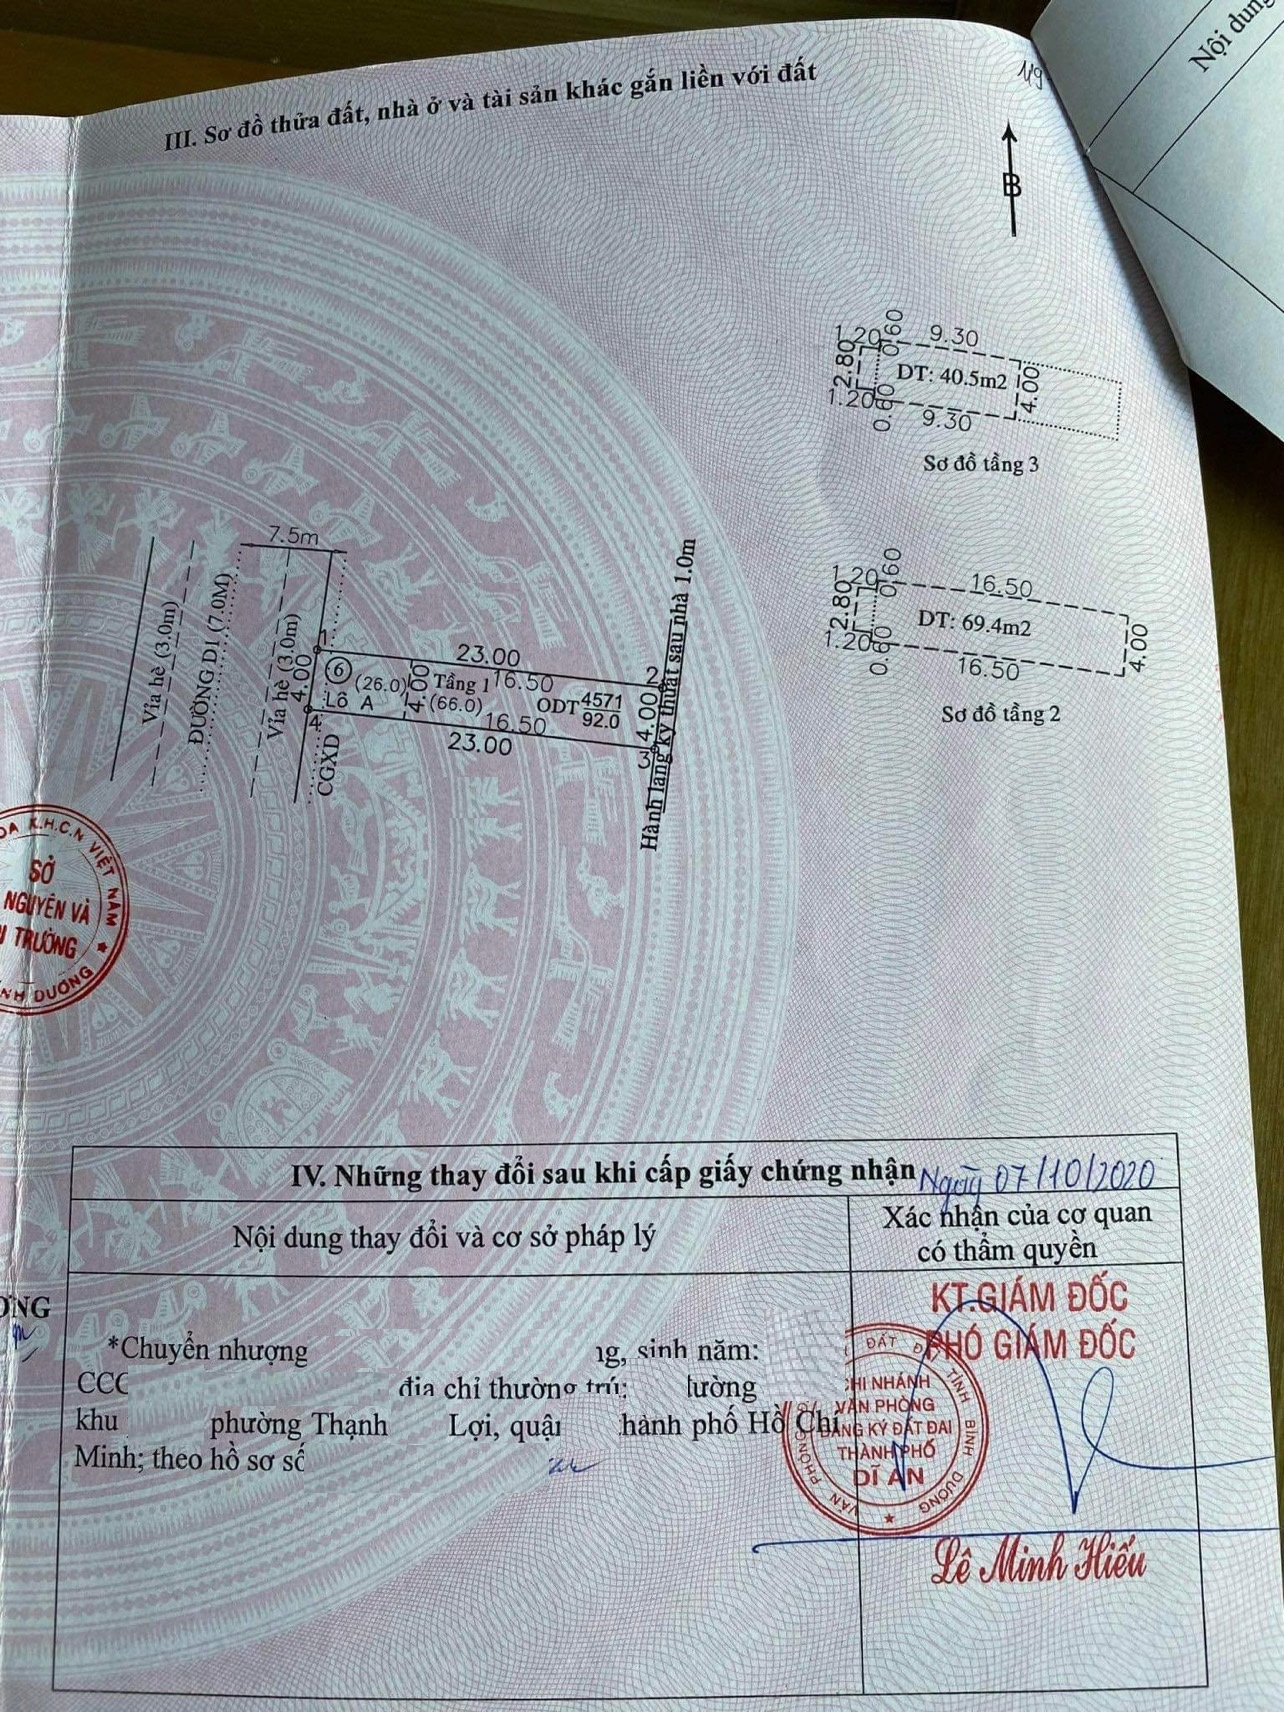 Nội dung
119
III. Sơ đồ thửa đất, nhà ở và tài sản khác gắn liền với đất
B
1.20
0.60
9.30
2.80
DT: 40.5m2
4.00
1.20
0.60
9.30
Sơ đồ tầng 3
1.20
0.60
16.50
2.80
DT: 69.4m2
4.00
1.20
0.60
16.50
Sơ đồ tầng 2
7.5m
Vỉa hè (3.0m)
ĐƯỜNG D1 (7.0M)
Vỉa hè (3.0m)
CGXD
1
23.00
2
4.00
6
(26.0)
4.00
Tầng 1
16.50
Lô A
(66.0)
ODT
4571
92.0
4.00
4
16.50
23.00
3
Hành lang kỹ thuật sau nhà 1.0m
K.H.C.N VIỆT NAM
SỞ
NGUYÊN VÀ
TRƯỜNG
DƯƠNG
IV. Những thay đổi sau khi cấp giấy chứng nhận Ngày 07/10/2020
Nội dung thay đổi và cơ sở pháp lý
Xác nhận của cơ quan
có thẩm quyền
*Chuyển nhượng sinh năm:
địa chỉ thường trú:
khu phường Thạnh Lợi, quận thành phố Hồ Chí
Minh; theo hồ sơ số
KT.GIÁM ĐỐC
PHÓ GIÁM ĐỐC
CHI NHÁNH
VĂN PHÒNG
ĐĂNG KÝ ĐẤT ĐAI
THÀNH PHỐ
DĨ AN
VĂN PHÒNG
ĐẤT
TỈNH BÌNH DƯƠNG
Lê Minh Hiếu